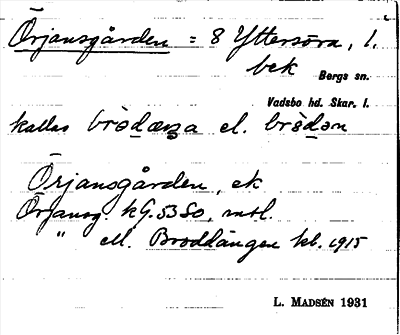 Örjansgården = 8 Yttersöra, l.
bek Bergs sn.
Vadsbo hd. Skar. l.
kallas el.
Örjansgården, ek
Örjansg. kG. 53 So,
" ell. Broddängen kb. 1915
L. MADSÉN 1931